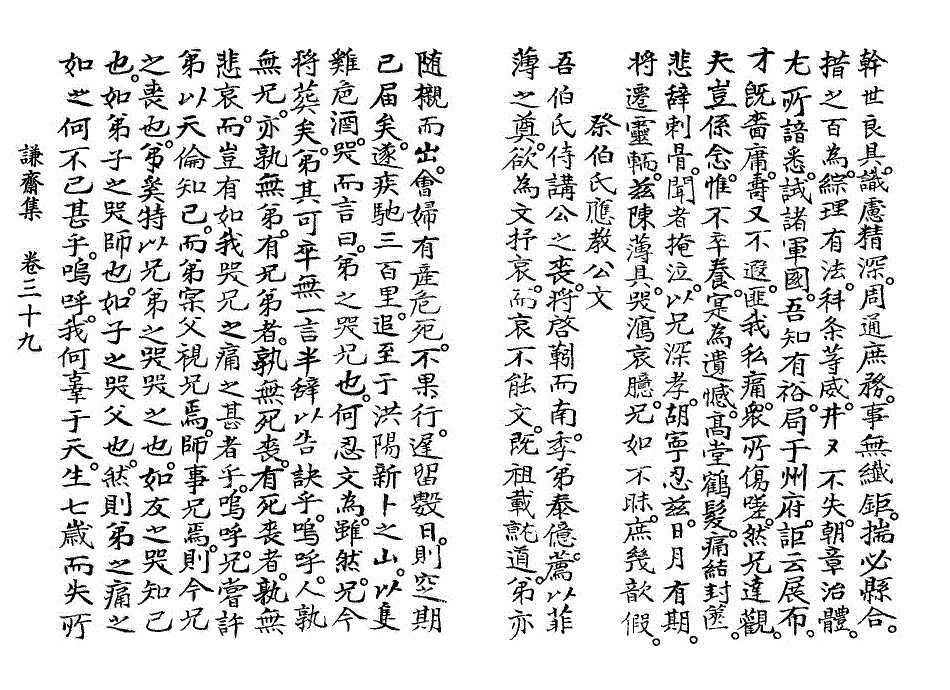 幹世良具。識慮精深。周通庶務。事無纖鉅。揣必縣合。
措之百為。綜理有法。科条等威。井々不失。朝章治體。
尤所諳悉。試諸軍國。吾知有裕。局于州府。詎云展布。
才既嗇庸。壽又不遐。匪我私痛。衆所傷嗟。然兄達觀。
夭豈係念。惟不卒養。寔為遺憾。高堂鶴髮。痛結封篋。
悲辞刺骨。聞者掩泣。以兄深孝。胡寧忍玆。日月有期。
将遷靈輀。玆陳薄具。哭瀉哀臆。兄如不昧。庶幾歆假。
祭伯氏應教公文
吾伯氏侍講公之丧。将啓靷而南。季弟奉億。薦以菲
薄之奠。欲為文抒哀。而哀不能文。既祖載就道。弟亦
随櫬而出。會婦有産危死。不果行。遅留數日。則窆期
已届矣。遂疾馳三百里。追至于洪陽新卜之山。以隻
雞危酒。哭而言曰。弟之哭兄也。何忍文為。雖然。兄今
将葬矣。弟其可卒無一言半辞以告訣乎。嗚呼。人孰
無兄。亦孰無弟。有兄弟者。孰無死丧。有死丧者。孰無
悲哀。而豈有如我哭兄之痛之甚者乎。嗚呼。兄嘗許
弟以天倫知己。而弟寀父視兄焉。師事兄焉。則今兄
之喪也。弟奚特以兄弟之哭哭之也。如友之哭知己
也。如弟子之哭師也。如子之哭父也。然則弟之痛之
如之何不已甚乎。嗚呼。我何辜于天。生七歲而失所
謙齋集 卷三十九